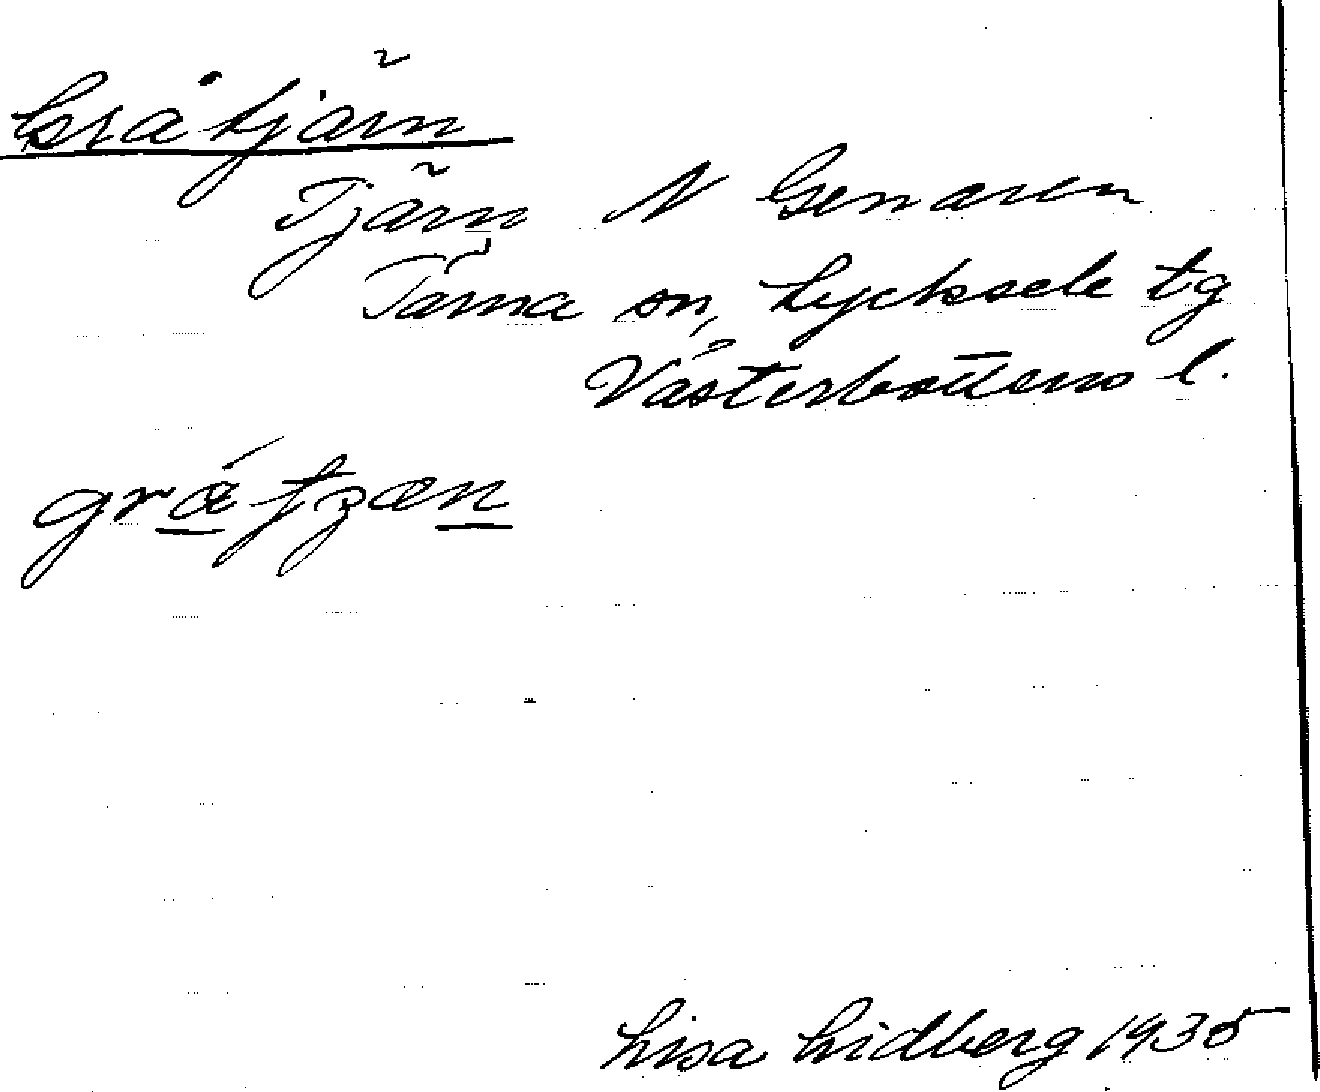 Gråtjärn
Tjärn N Genaren
Tärna sn, Lycksele tg
Västerbottens l.
Lisa Lidberg 1935